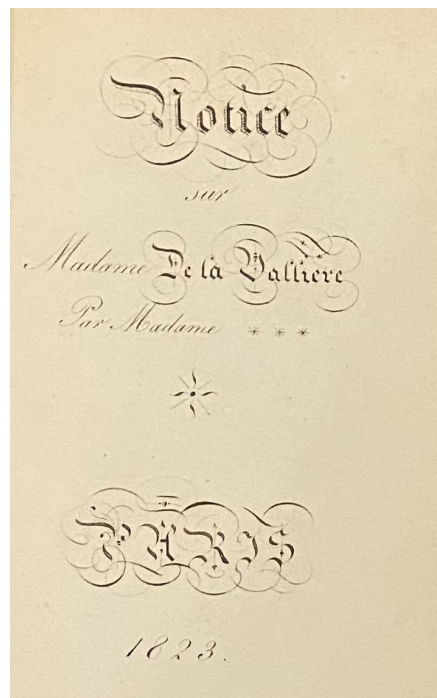 Notice
sur
Madame De la Vallière
Par Madame * * *
PARIS
1823.